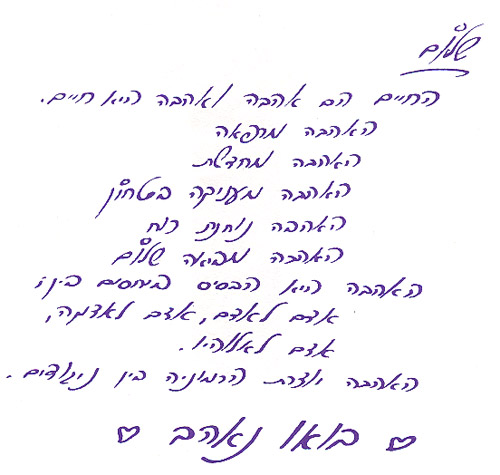 שלום
החיים הם אהבה ואהבה היא חיים.
האהבה מרפאה
האהבה מחדשת
האהבה מעניקה בטחון
האהבה נותנת כח
האהבה מביאה שלום
האהבה היא הבסיס ביחסים בין:
אדם לאדם, אדם לאדמה,
אדם לאלוהיו.
האהבה יוצרת הרמוניה בין ניגודים.
♡ בואו נאהב ♡